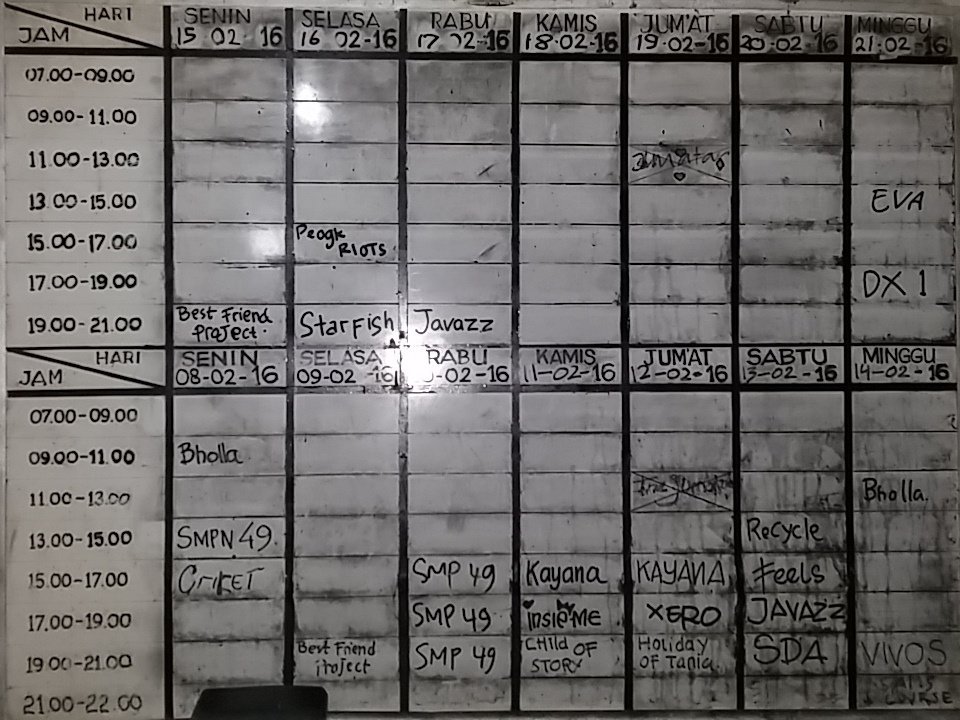 HARI SENIN SELASA RABU KAMIS JUM'AT SABTU MINGGU
JAM 15 02 16 16 02-16 17 02-16 18-02-16 19-02-16 20-02-16 21-02-16
07.00-09.00
09.00-11.00
11.00-13.00
13.00-15.00 EVA
15.00-17.00 Peogk
RIOTS
17.00-19.00 DX 1
19.00-21.00 Best Friend StarFish Javazz
Project
HARI SENIN SELASA RABU KAMIS JUMAT SABTU MINGGU
JAM 08-02-16 09-02 16 -02-16 11-02-16 12-02-16 13-02-16 14-02-16
07.00-09.00
09.00-11.00 Bholla
11.00-13.00 Bholla.
13.00-15.00 SMPN 49. Recycle
15.00-17.00 CRIKET SMP 49 Kayana KAYANA Feels
17.00-19.00 SMP 49 insieME XERO JAVAZZ
19.00-21.00 Best Friend SMP 49 CHILD OF Holiday SDA VIVOS
Project STORY OF Tania
21.00-22.00